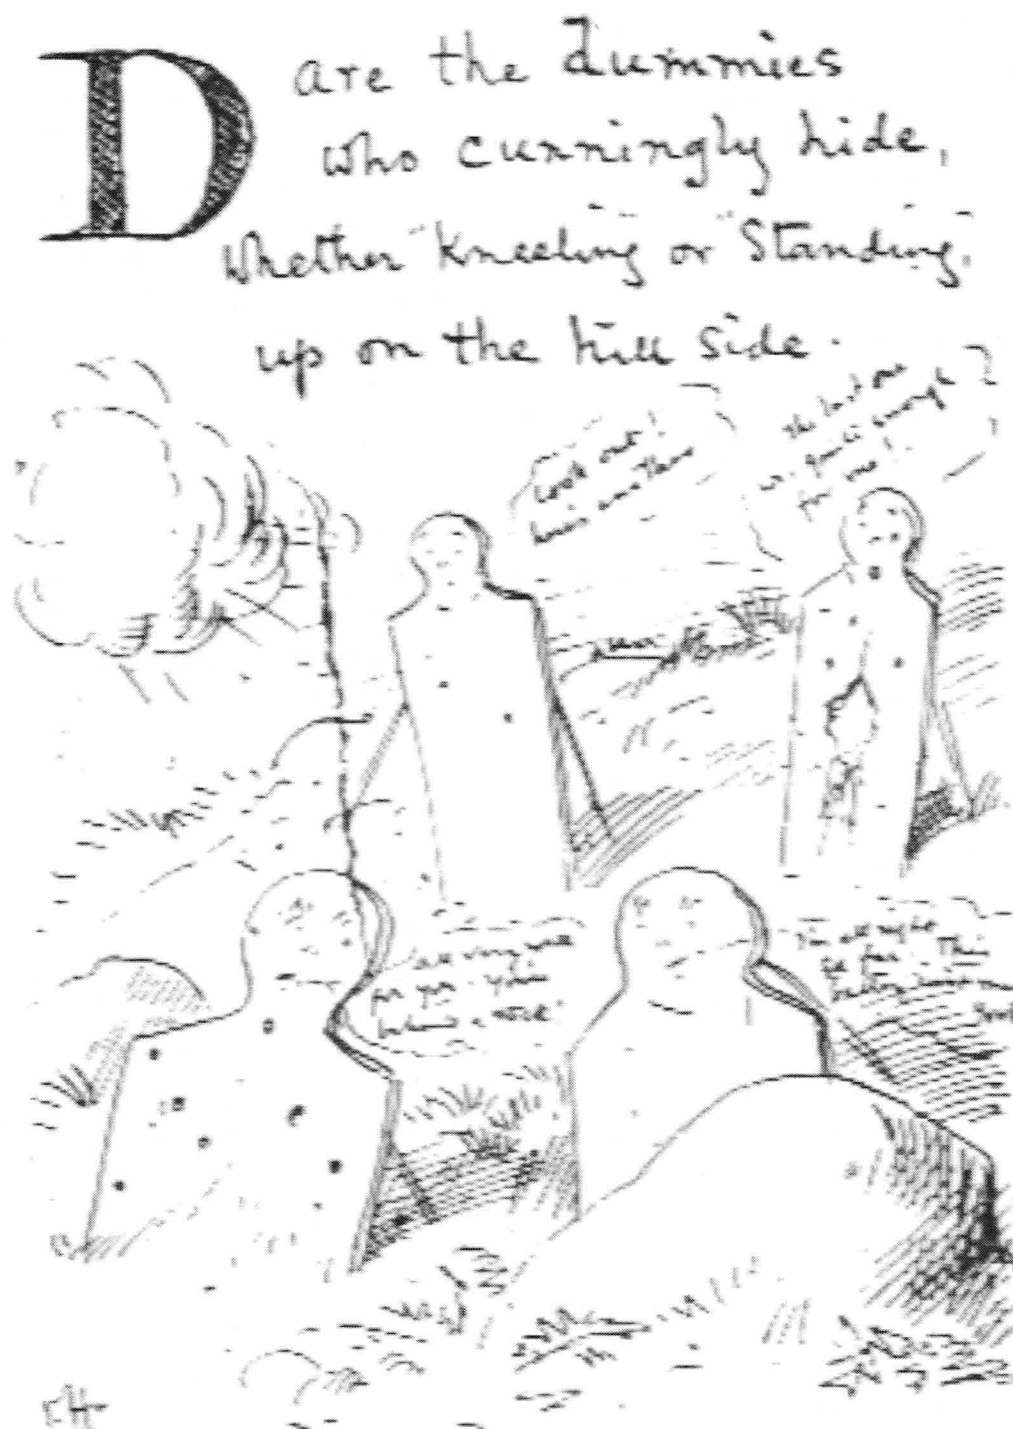 D are the dummies
who cunningly hide,
Whether "Kneeling" or "Standing,"
up on the hill side.
Look out!
here's another
The last one
was quite enough
for me!
all very well
for you. You're
behind a
I'm all right
EH